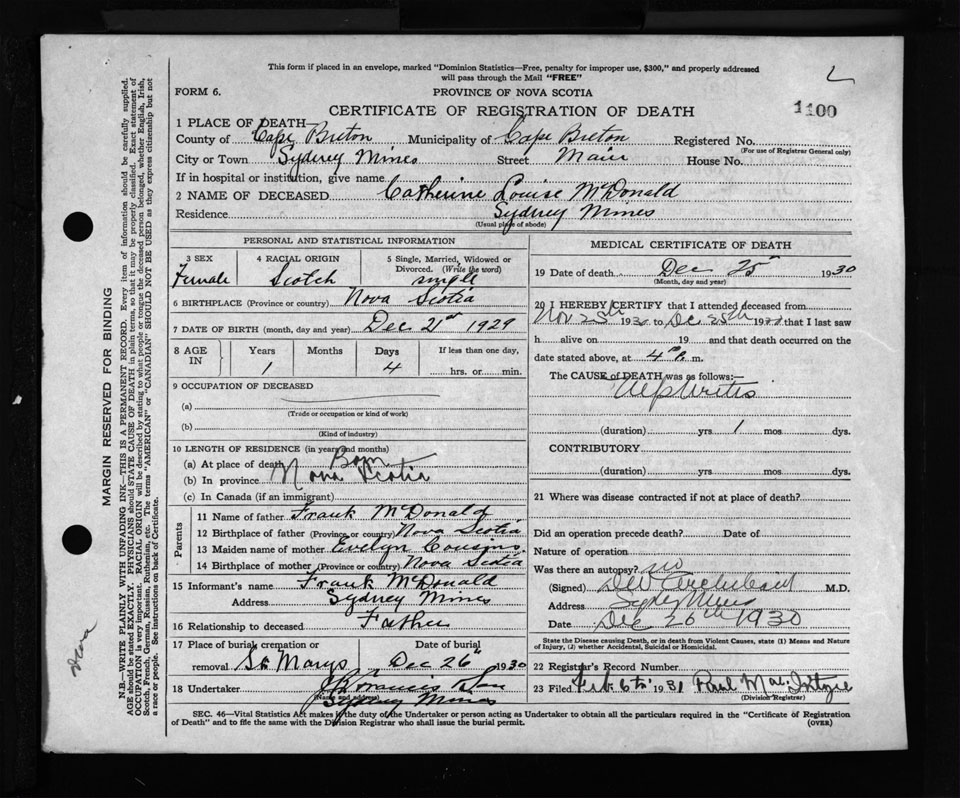 This form if placed in an envelope, marked "Dominion Statistics—Free, penalty for improper use, $300," and properly addressed
will pass through the Mail "FREE"
FORM 6. PROVINCE OF NOVA SCOTIA
CERTIFICATE OF REGISTRATION OF DEATH 1100
1 PLACE OF DEATH—
County of Cape Breton Municipality of Cape Breton Registered No.
(For use of Registrar General only)
City or Town Sydney Mines Street Main House No.
If in hospital or institution, give name
2 NAME OF DECEASED Catherine Louise McDonald
Residence Sydney Mines
(Usual place of abode)
PERSONAL AND STATISTICAL INFORMATION
3 SEX 4 RACIAL ORIGIN 5 Single, Married, Widowed or
Divorced. (Write the word)
Female Scotch single
6 BIRTHPLACE (Province or country) Nova Scotia
7 DATE OF BIRTH (month, day and year) Dec 21st 1929
8 AGE IN Years Months Days If less than one day,
1 4 hrs. or min.
9 OCCUPATION OF DECEASED
(a)
(Trade or occupation or kind of work)
(b)
(Kind of industry)
10 LENGTH OF RESIDENCE (in years and months)
(a) At place of death Born
(b) In province Nova Scotia
(c) In Canada (if an immigrant)
Parents
11 Name of father Frank McDonald
12 Birthplace of father (Province or country) Nova Scotia
13 Maiden name of mother Evelyn Cousins
14 Birthplace of mother (Province or country) Nova Scotia
15 Informant's name Frank McDonald
Address Sydney Mines
16 Relationship to deceased Father
17 Place of burial cremation or removal St Marys Date of burial Dec 26th 1930
18 Undertaker
(Name and address)
Sydney Mines
MEDICAL CERTIFICATE OF DEATH
19 Date of death Dec 25th 1930
(Month, day and year)
20 I HEREBY CERTIFY that I attended deceased from
Nov 25th 1930 to Dec 25th that I last saw
h alive on 19 and that death occurred on the
date stated above, at 4 P. m.
The CAUSE of DEATH was as follows:—
Nephritis
(duration) yrs 1 mos dys.
CONTRIBUTORY
(duration) yrs. mos. dys.
21 Where was disease contracted if not at place of death?
Did an operation precede death? Date of
Nature of operation
Was there an autopsy? no
(Signed) Archibald M.D.
Address Sydney Mines
Date Dec 26th 1930
State the Disease causing Death, or in death from Violent Causes, state (1) Means and Nature
of Injury, (2) whether Accidental, Suicidal or Homicidal.
22 Registrar's Record Number
23 Filed Feb. 6th 1931 Paul MacIntyre
(Division Registrar)
SEC. 46—Vital Statistics Act makes it the duty of the Undertaker or person acting as Undertaker to obtain all the particulars required in the "Certificate of Registration
of Death" and to file the same with the Division Registrar who shall issue the burial permit. (OVER)
MARGIN RESERVED FOR BINDING
N.B.—WRITE PLAINLY WITH UNFADING INK—THIS IS A PERMANENT RECORD. Every item of information should be carefully supplied.
AGE should be stated EXACTLY. PHYSICIANS should STATE CAUSE OF DEATH in plain terms, so that it may be properly classified. Exact statement of
OCCUPATION is very important. RACIAL ORIGIN will be described by stating to what people or tongue the deceased person belonged, whether English, Irish,
Scotch, French, German, Russian, Ruthenian, etc. The terms "AMERICAN" or "CANADIAN" SHOULD NOT BE USED as they express citizenship but not
a race or people. See instructions on back of Certificate.